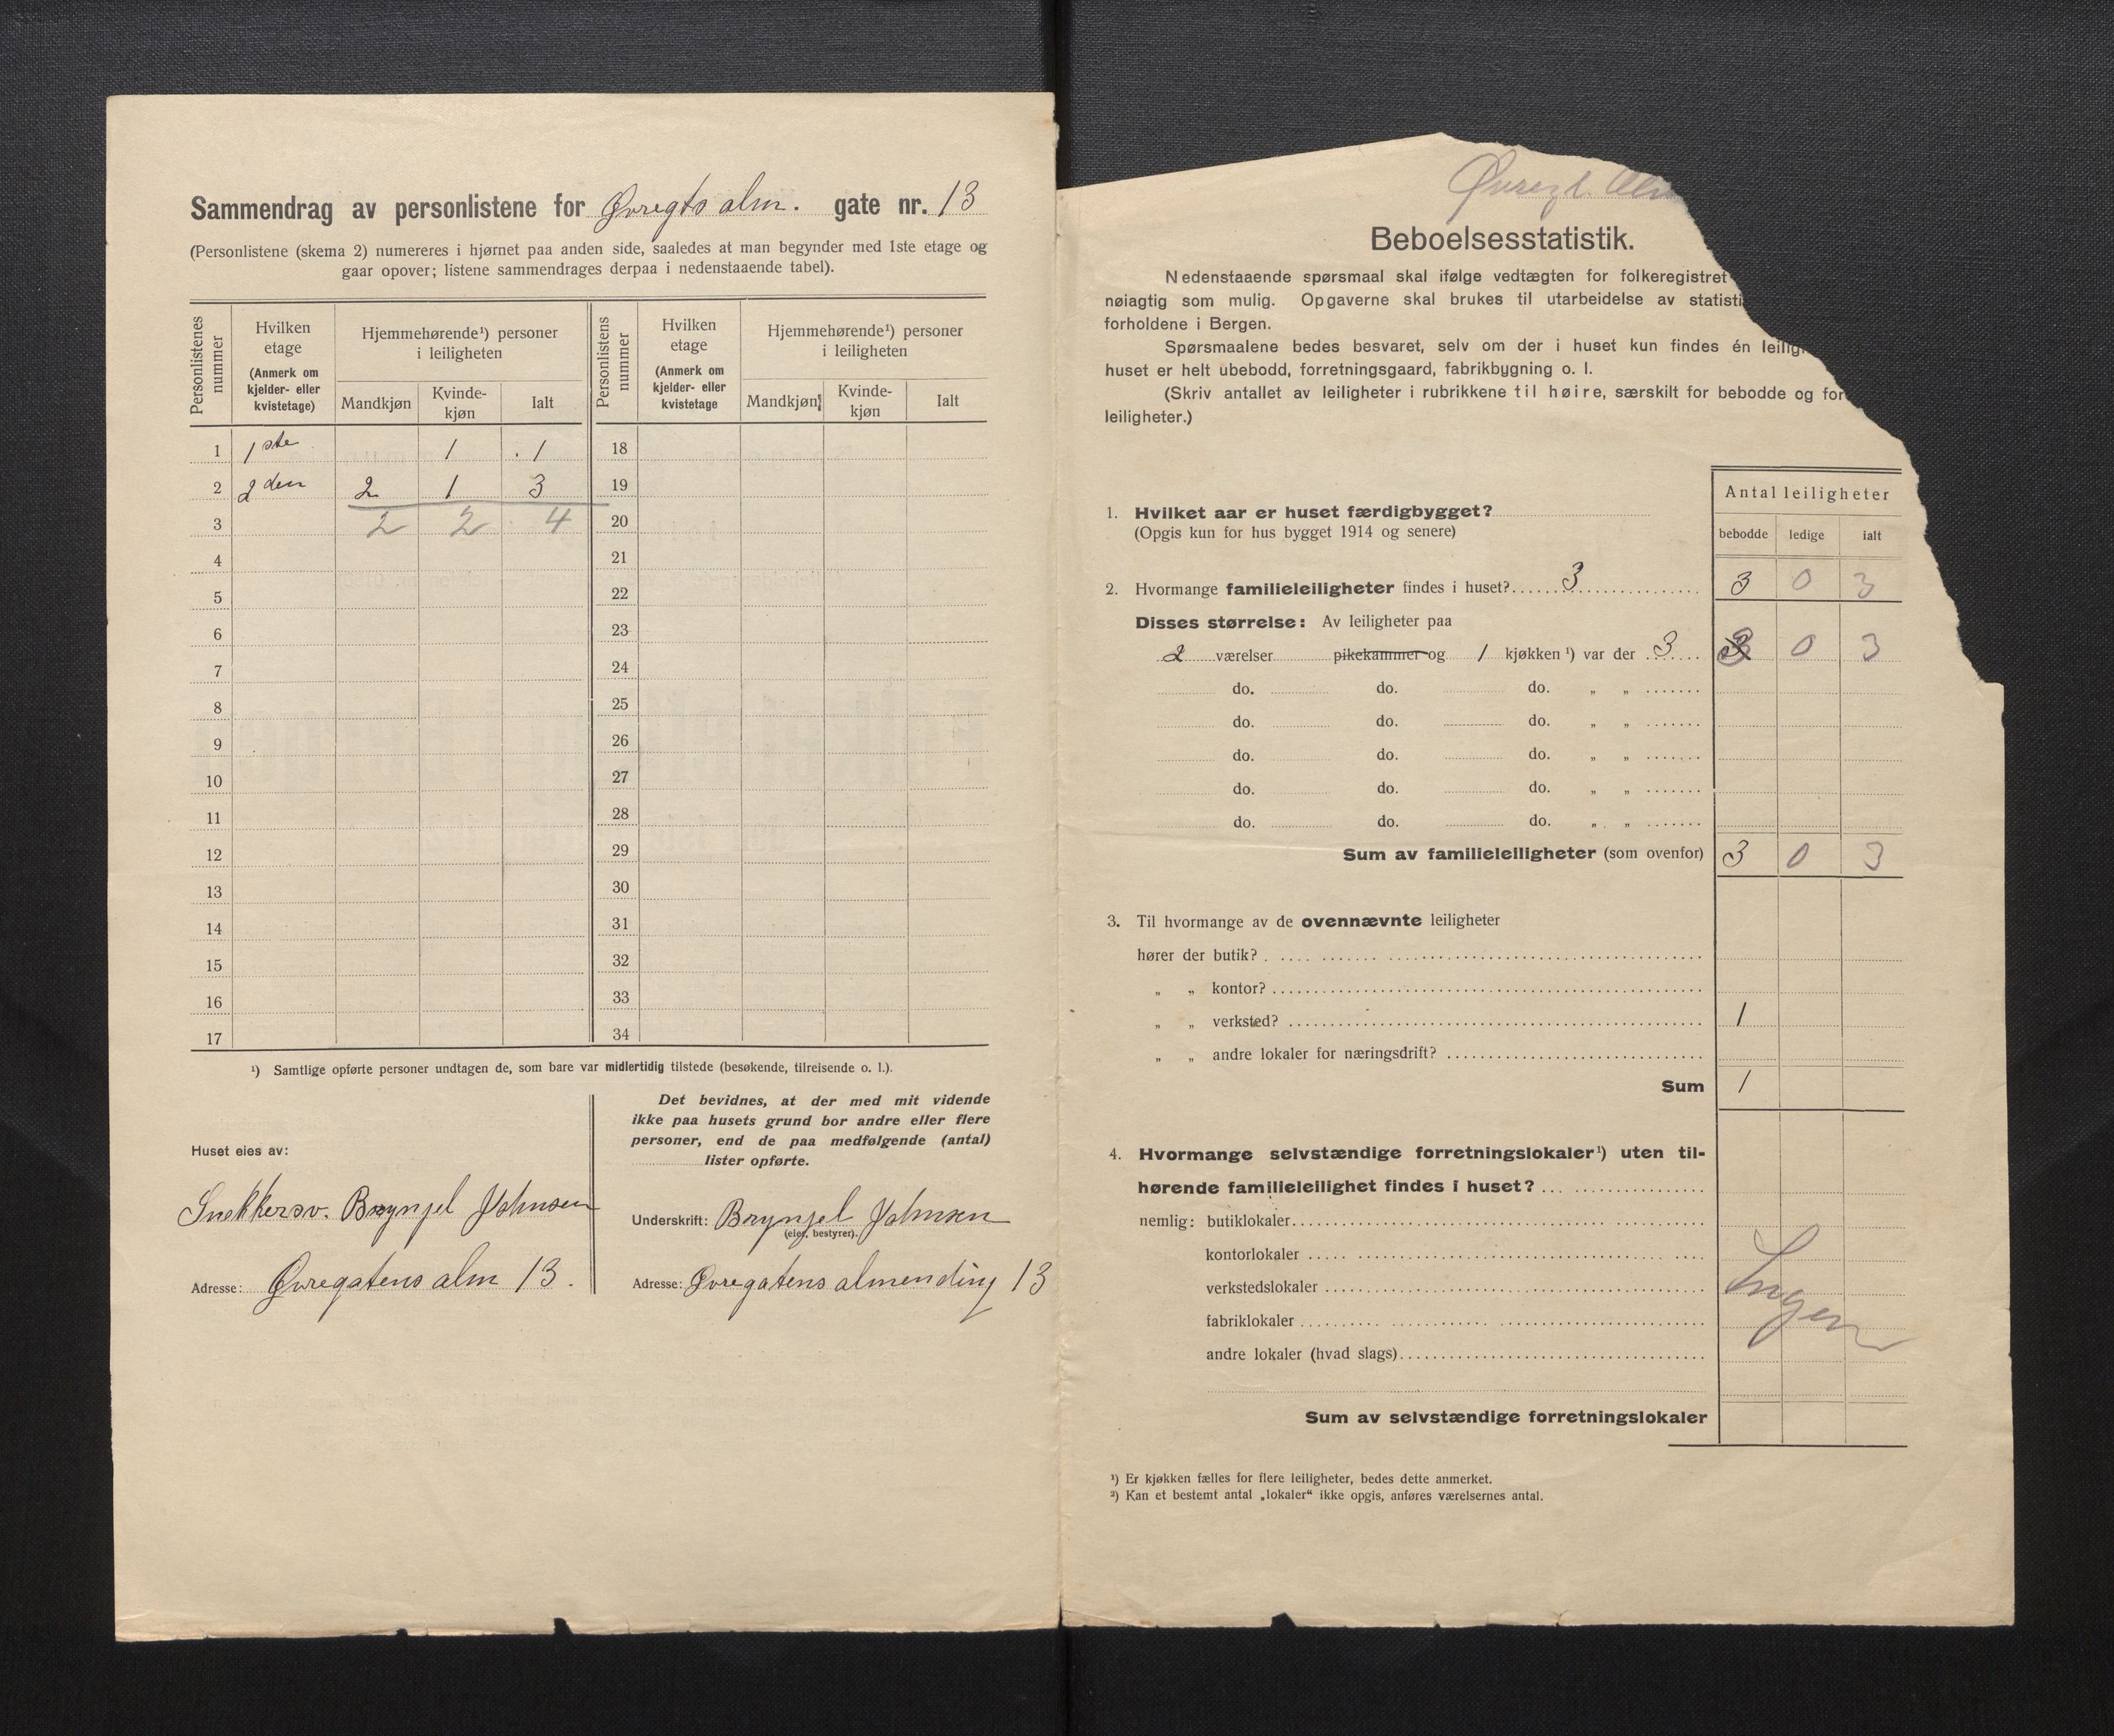 Sammendrag av personlistene for Øvregts alm. gate nr. 13
(Personlistene (skema 2) numereres i hjørnet paa anden side, saaledes at man begynder med 1ste etage og
gaar opover; listene sammendrages derpaa i nedenstaaende tabel).
Personlistenes nummer
Hvilken etage (Anmerk om kjelder- eller kvistetage)
Hjemmehørende¹) personer i leiligheten
Mandkjøn Kvinde-kjøn Ialt
Personlistens nummer
Hvilken etage (Anmerk om kjelder- eller kvistetage
Hjemmehørende¹) personer i leiligheten
Mandkjøn Kvinde-kjøn Ialt
1 1ste 1 1 18
2 2den 2 1 3 19
3 2 2 4 20
4 21
5 22
6 23
7 24
8 25
9 26
10 27
11 28
12 29
13 30
14 31
15 32
16 33
17 34
¹) Samtlige opførte personer undtagen de, som bare var midlertidig tilstede (besøkende, tilreisende o. l.).
Huset eies av:
Snekkersv. Brynjel Johnsen
Adresse: Øvregatens alm 13.
Det bevidnes, at der med mit vidende
ikke paa husets grund bor andre eller flere
personer, end de paa medfølgende (antal)
lister opførte.
Underskrift: Brynjel Johnsen
(eier, bestyrer).
Adresse: Øvregatens almending 13
Øvregt. Alm
Beboelsesstatistik.
Nedenstaaende spørsmaal skal ifølge vedtægten for folkeregistret
nøiagtig som mulig. Opgaverne skal brukes til utarbeidelse av statisti
forholdene i Bergen.
Spørsmaalene bedes besvaret, selv om der i huset kun findes én leilig
huset er helt ubebodd, forretningsgaard, fabrikbygning o. l.
(Skriv antallet av leiligheter i rubrikkene til høire, særskilt for bebodde og for
leiligheter.)
Antal leiligheter
bebodde ledige ialt
1. Hvilket aar er huset færdigbygget?
(Opgis kun for hus bygget 1914 og senere)
2. Hvormange familieleiligheter findes i huset? 3 3 0 3
Disses størrelse: Av leiligheter paa
2 værelser pikekammer og 1 kjøkken¹) var der 3 3 0 3
do. do. do. „ „
do. do. do. „ „
do. do. do. „ „
do. do. do. „ „
do. do. do. „ „
Sum av familieleiligheter (som ovenfor) 3 0 3
3. Til hvormange av de ovennævnte leiligheter
hører der butik?
„ „ kontor?
„ „ verksted? 1
„ „ andre lokaler for næringsdrift?
Sum 1
4. Hvormange selvstændige forretningslokaler¹) uten til-
hørende familieleilighet findes i huset?
nemlig: butiklokaler
kontorlokaler
verkstedslokaler Ingen
fabriklokaler
andre lokaler (hvad slags)
Sum av selvstændige forretningslokaler
¹) Er kjøkken fælles for flere leiligheter, bedes dette anmerket.
²) Kan et bestemt antal „lokaler“ ikke opgis, anføres værelsernes antal.